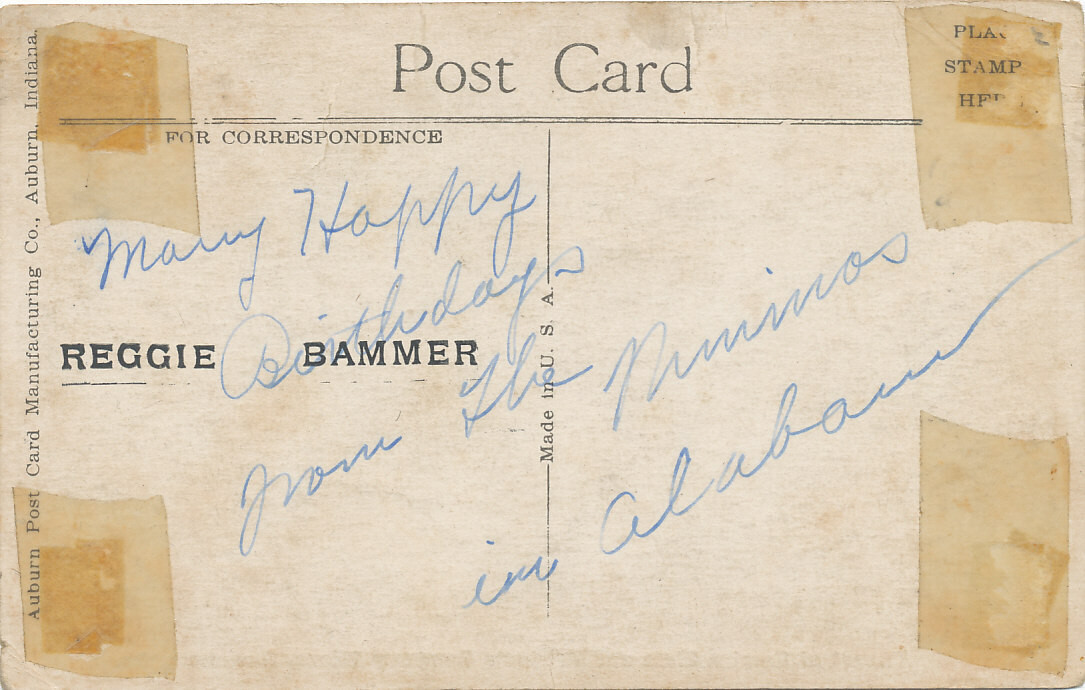 Post Card
PLA
STAMP
HE
FOR CORRESPONDENCE
Many Happy
Birthdays
from the
in Alabama
REGGIE BAMMER
Made in U. S. A.
Auburn Post Card Manufacturing Co., Auburn, Indiana.